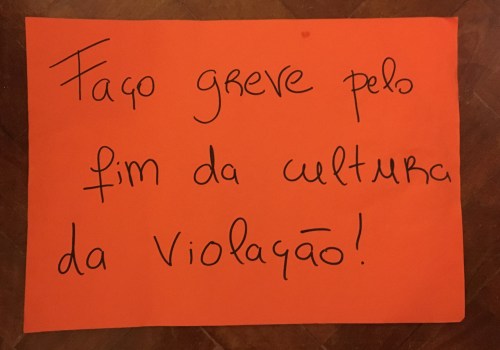 Faço greve pelo
fim da cultura
da violação!